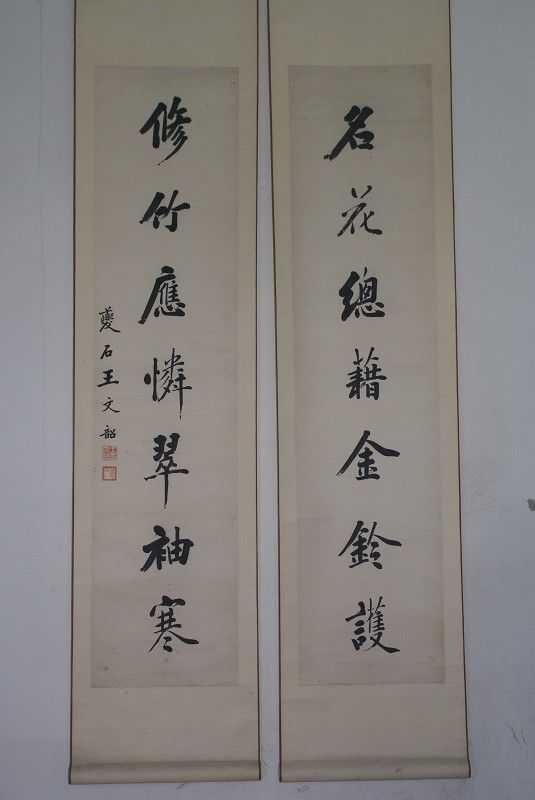 名花總藉金鈴護
修竹應憐翠袖寒
夔石王文韶